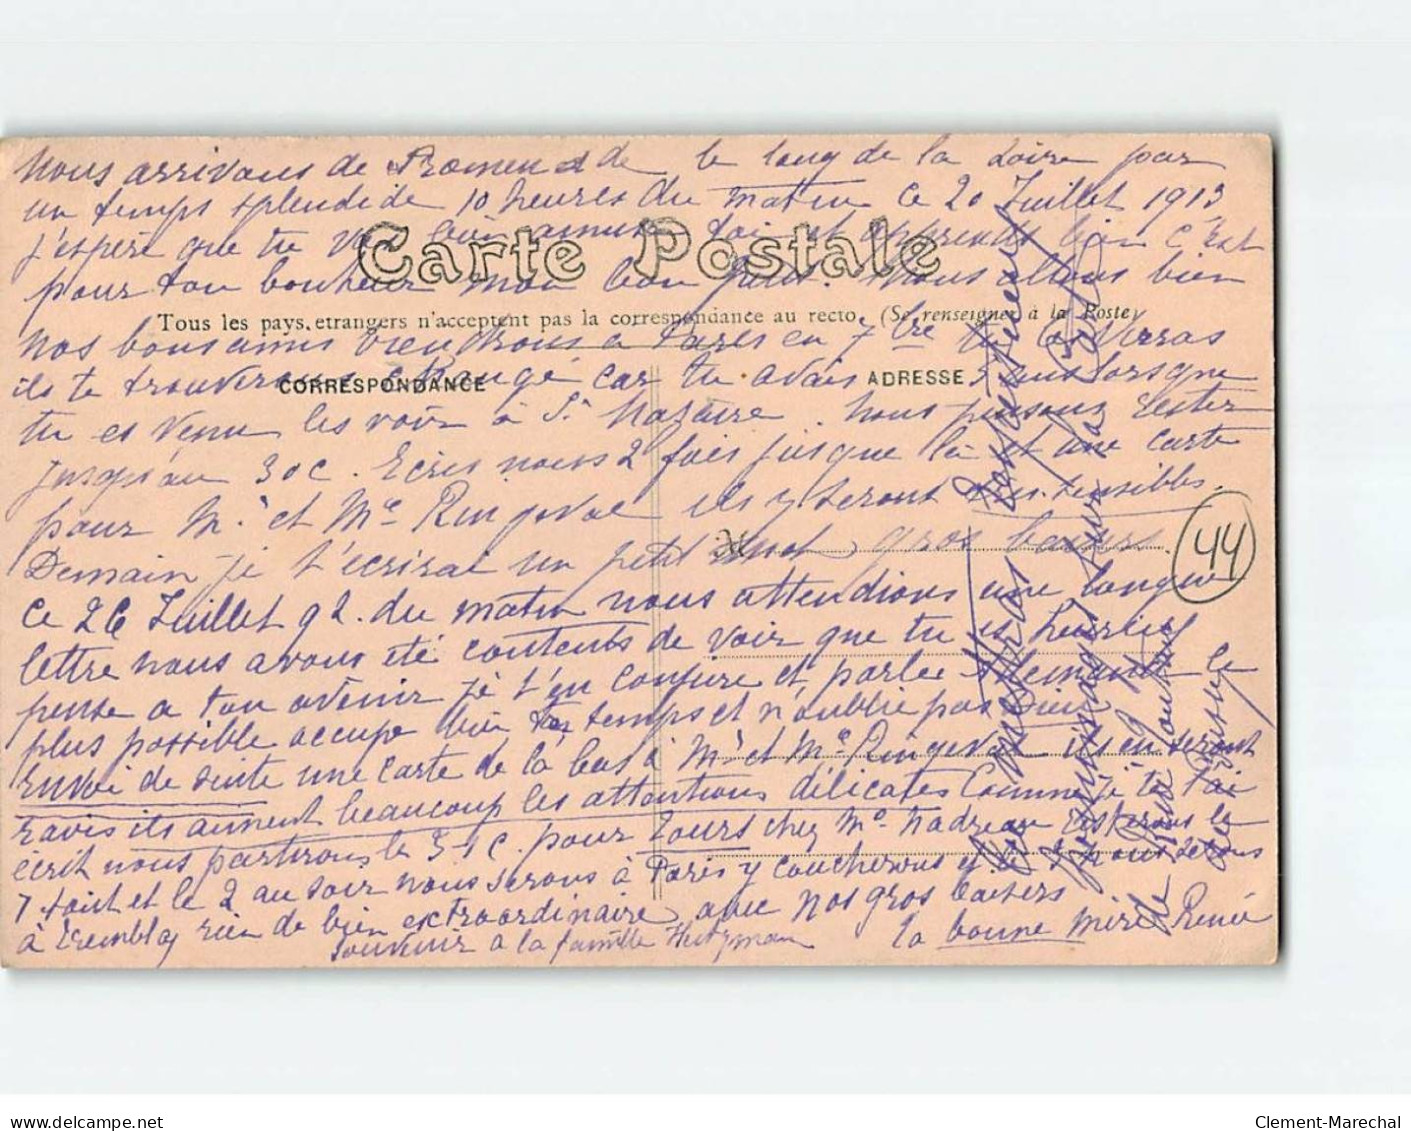 Nous arrivons de Promenade le long de la Loire par
un temps splendide 10 heures du matin ce 20 Juillet 1913
j'espère que tu vas bien amuse toi et apprends bien c'est
Carte Postale
pour ton bonheur mon bon petit. Nous allons bien
Tous les pays etrangers n'acceptent pas la correspondance au recto (Se renseigner à la Poste)
nos bons amis viendrons a Paris en 7bre tu les Verras
ils te trouverons changé car tu avais 3 ans lorsque
CORRESPONDANCE
ADRESSE
tu es venu les voir à St Nazaire. Nous pensons rester
jusqu'au 30 c. Ecris nous 2 fois jusque là et une carte
pour Mr et Me Ringeval ils y seront très sensibles.
Demain je t'écrirai un petit mot gros baisers
44
ce 26 Juillet 9 h. du matin nous attendions une longue
lettre nous avons été contents de voir que tu es heureux
pense a ton avenir je t'en conjure et parle Allemand le
plus possible occupe bien ton temps et n'oublie pas Dieu
envoi de suite une carte de là bas à Mr et Me Ringeval ils en seront
ravis ils aiment beaucoup les attentions délicates Comme je te l'ai
écrit nous partirons le 31 c. pour Tours chez Me Nadreau resterons le
1 Août et le 2 au soir nous serons à Paris y coucherons et
à Tremblay rien de bien extraordinaire avec nos gros baisers
souvenir a la famille Heitzman
la bonne mère Renée